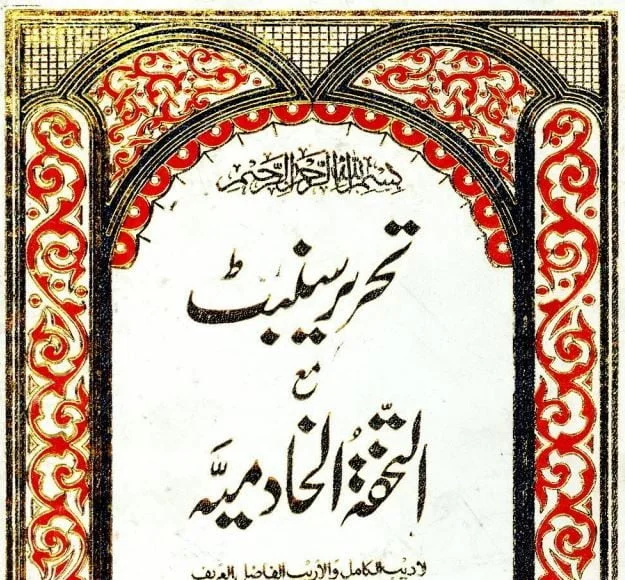 بسم الله الرحمن الرحیم
تحریر سنبٹ
مع
التحفۃ الخادمیہ
لادیب الکامل والاریب الفاضل العریف